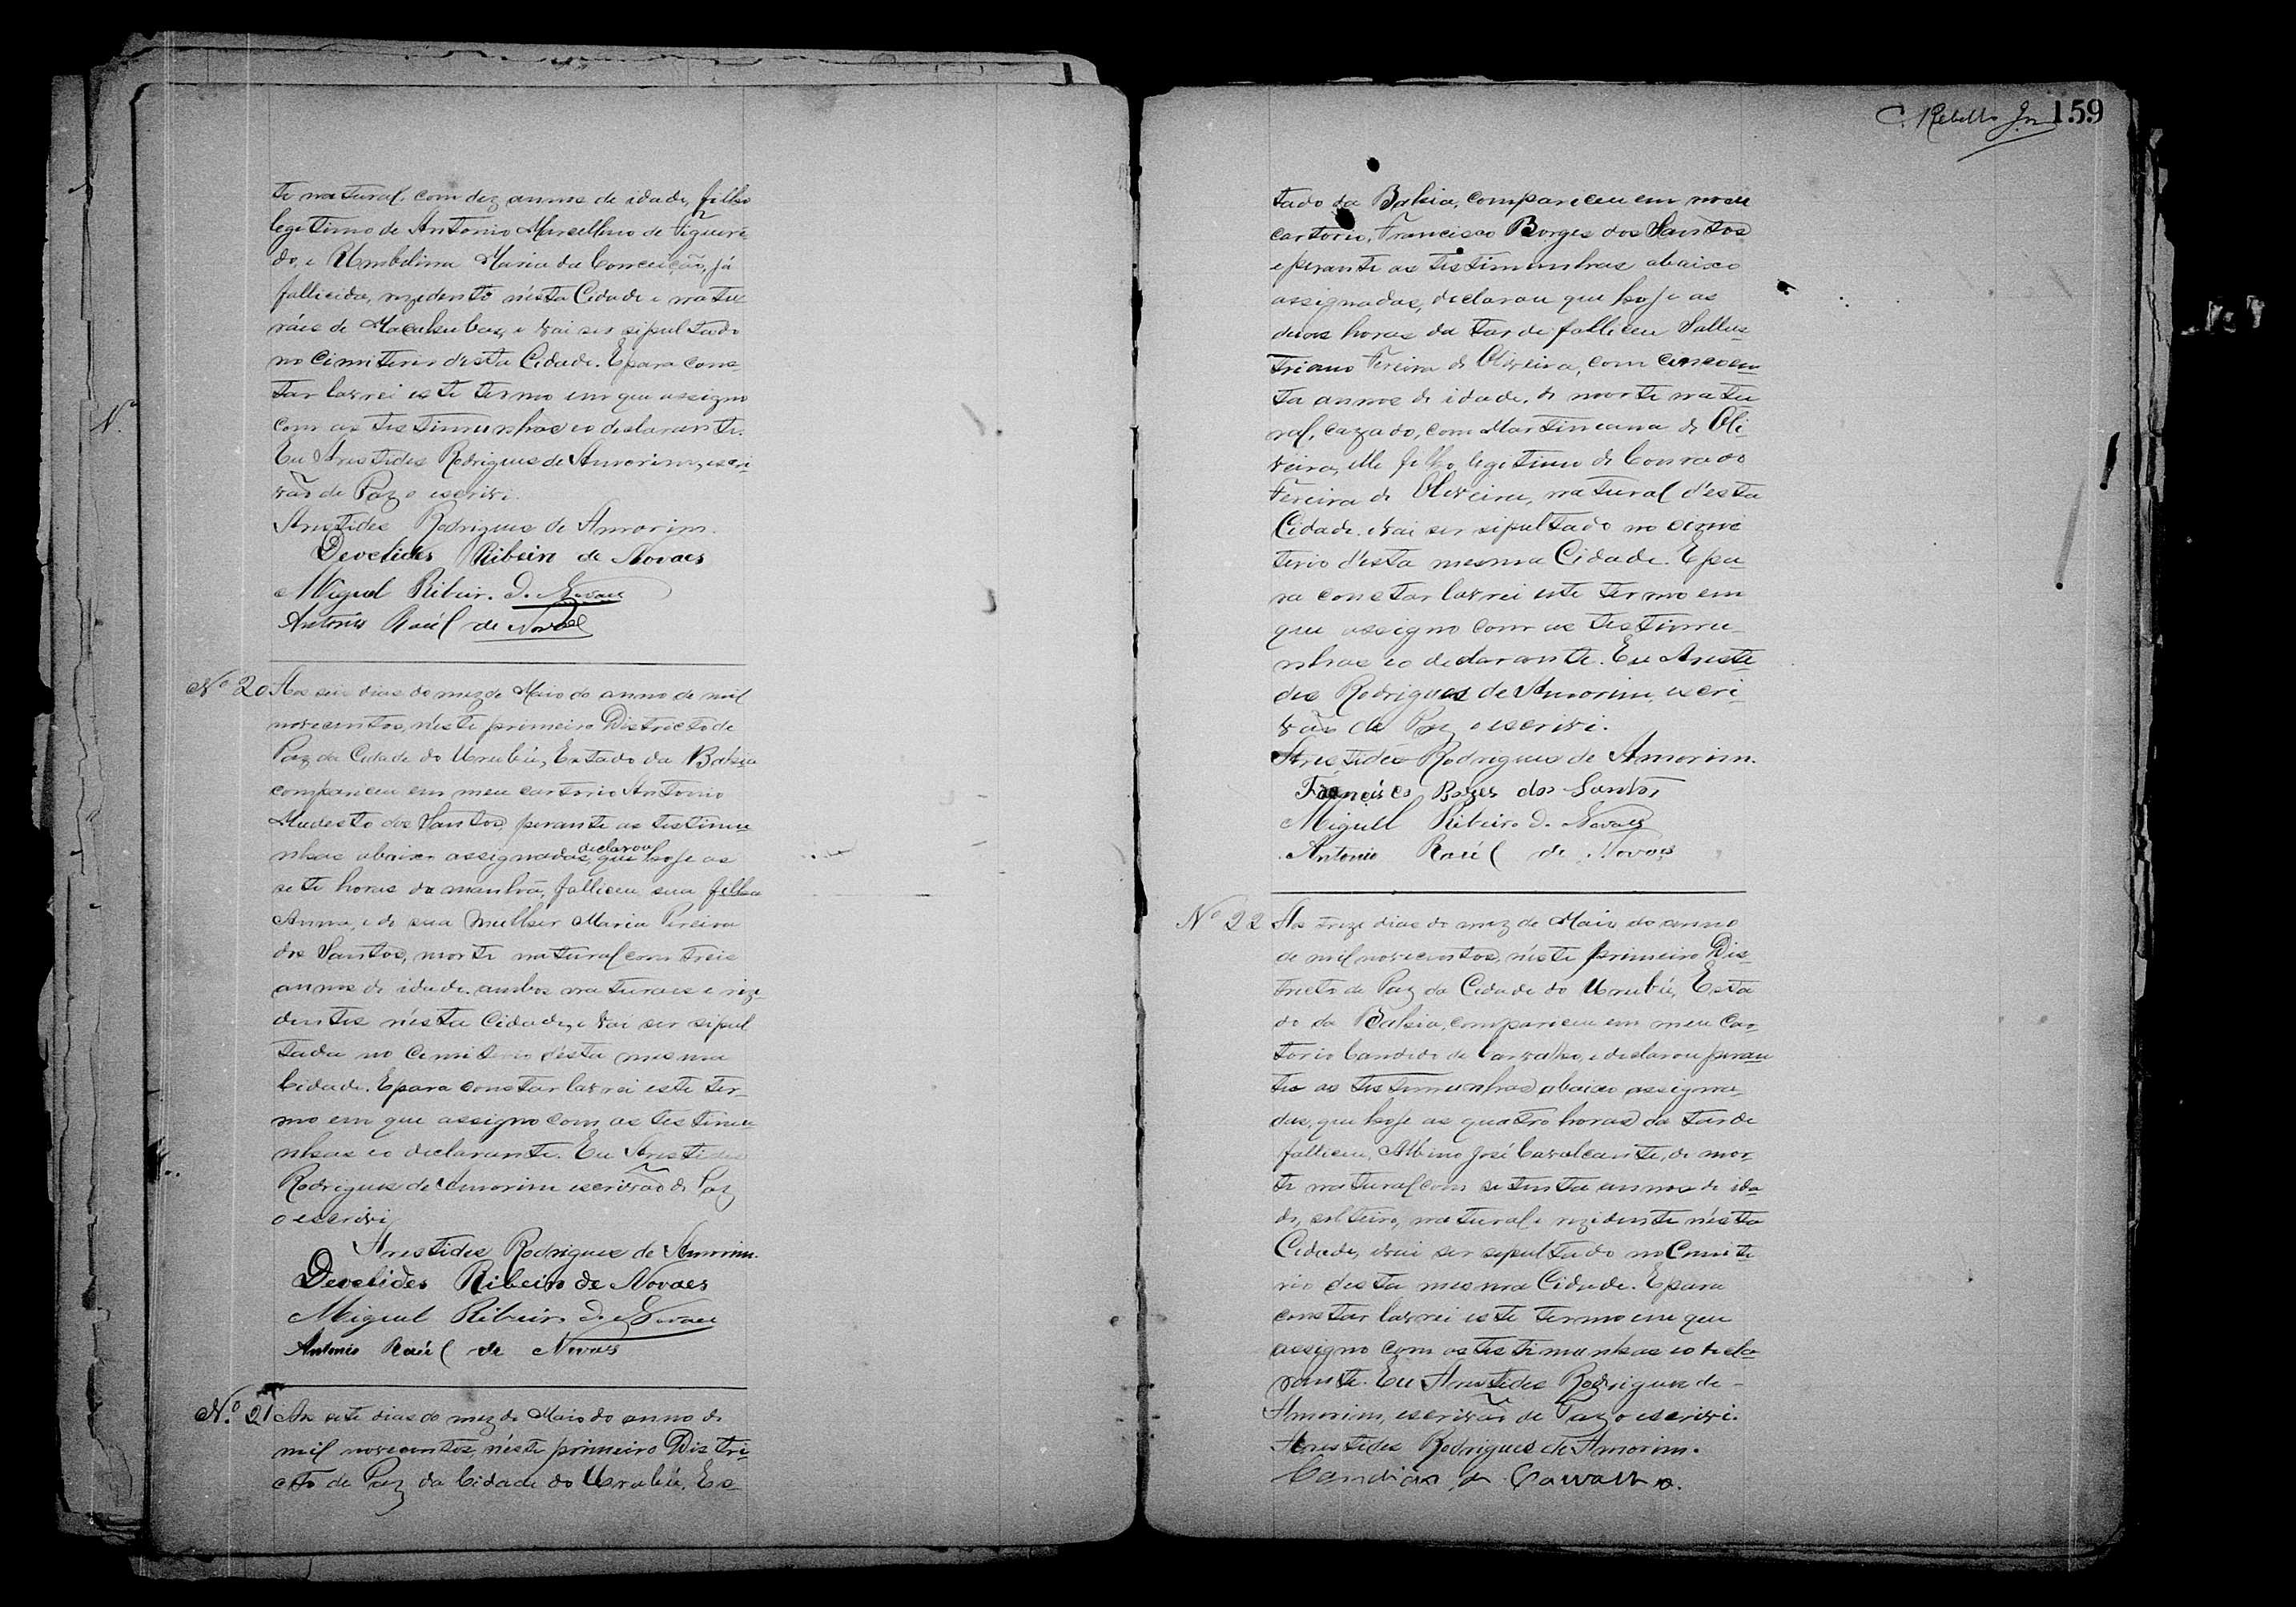 te natural, com dez annos de idade, filho
legitimo de Antonio Marcellino de Figueri-
do, e Umbelina Maria da Conceição, já
fallicida, rezidente nésta Cidade e natu
ráes de Macahubas, e vai ser sipultado
no Cimiterio désta Cidade. E para cons-
tar lavrei este termo em que assigno
com as testimunhas e o declarante.
Eu Aristides Rodrigues de Amorim, escri-
vão de Paz o escrivi.
Aristides Rodrigues de Amorim.
Devetides Ribeiro de Novaes
Miguel Ribeiro de Novaes
Antonio Raúl de Novaes
Nº 20 Aos seis dias do mez de Maio do anno de mil
novecentos, néste primeiro Districto de
Paz da Cidade do Urubú, Estado da Bahia
compariceu em meu cartorio Antonio
Modesto dos Santos, perante as testimu
nhas abaixo assignadas declarou que hoje as
sete horas da manhã, falliceu sua filha
Anna, e de sua mulher Maria Pereira
dos Santos, morte natural com treis
annos de idade. ambos naturaes e rezi-
dentes nésta Cidade, e vai ser sipul
tada no Cemiterio désta mesma
Cidade. E para constar lavrei este ter-
mo em que assigno com as testimu
nhas e o declarante. Eu Aristides
Rodrigues de Amorim escrivão de Paz
o escrivi
Aristides Rodrigues de Amorim.
Devetides Ribeiro de Novaes
Miguel Ribeiro de Novaes
Antonio Raúl de Novaes
Nº 21 Aos sete dias do mez de Maio do anno de
mil novecentos, néste primeiro Distri-
cto de Paz da Cidade do Urubú, Es-
C. Rebello Jor 159
tado da Bahia, compariceu em meu
cartorio, Francisco Borges dos Santos
e perante as testimunhas abaixo
assignadas, declarou que hoje as
duas horas da tarde falliceu Sallus
triano Fereira de Oliveira, com cincoen
ta annos de idade, de morte natu
ral, cazado, com Martineana de Oli-
veira, elle filho legitimo de Conrado
Fereira de Oliveira, natural d'esta
Cidade. e vai ser sipultado no cimi
terio d'ésta mesma Cidade. E pa-
ra constar lavrei este termo em
que assigno com as testimu-
nhas e o declarante. Eu Aristi-
des Rodrigues de Amorim, escri-
vão de Paz o escrivi.
Aristides Rodrigues de Amorim.
Francisco Bozes dos Santos
Miguell Ribeiro de Novaes
Antonio Raúl de Novaes
Nº 22 Aos treze dias do mez de Maio do anno
de mil novecentos, néste primeiro Dis-
tricto de Paz da Cidade do Urubú, Esta
do da Bahia, compariceu em meu Car
torio Candido de Carvalho, e declarou peran
te as testimunhas abaixo assigna-
das, que hoje as quatro horas da tarde
falliceu, Albino José Cavalcante, de mor
te natural com setenta annos de ida
de, solteiro, natural e rezidente nésta
Cidade, e vai ser sepultado no Cimite
rio desta mesma Cidade. E para
constar lavrei este termo em que
assigno com as testimunhas e o decla
rante. Eu Aristides Rodrigues de
Amorim, escrivão de Paz o escrivi.
Aristides Rodrigues de Amorim.
Candido de Carvalho.